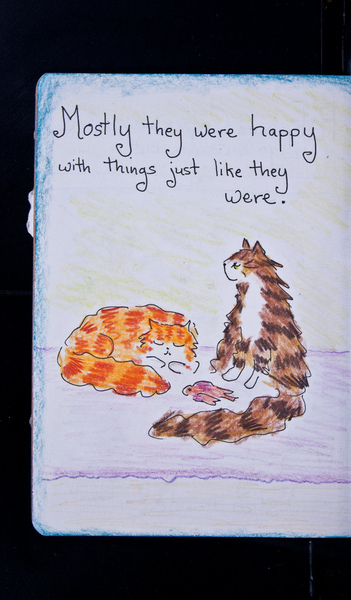 Mostly they were happy
with things just like they
were.